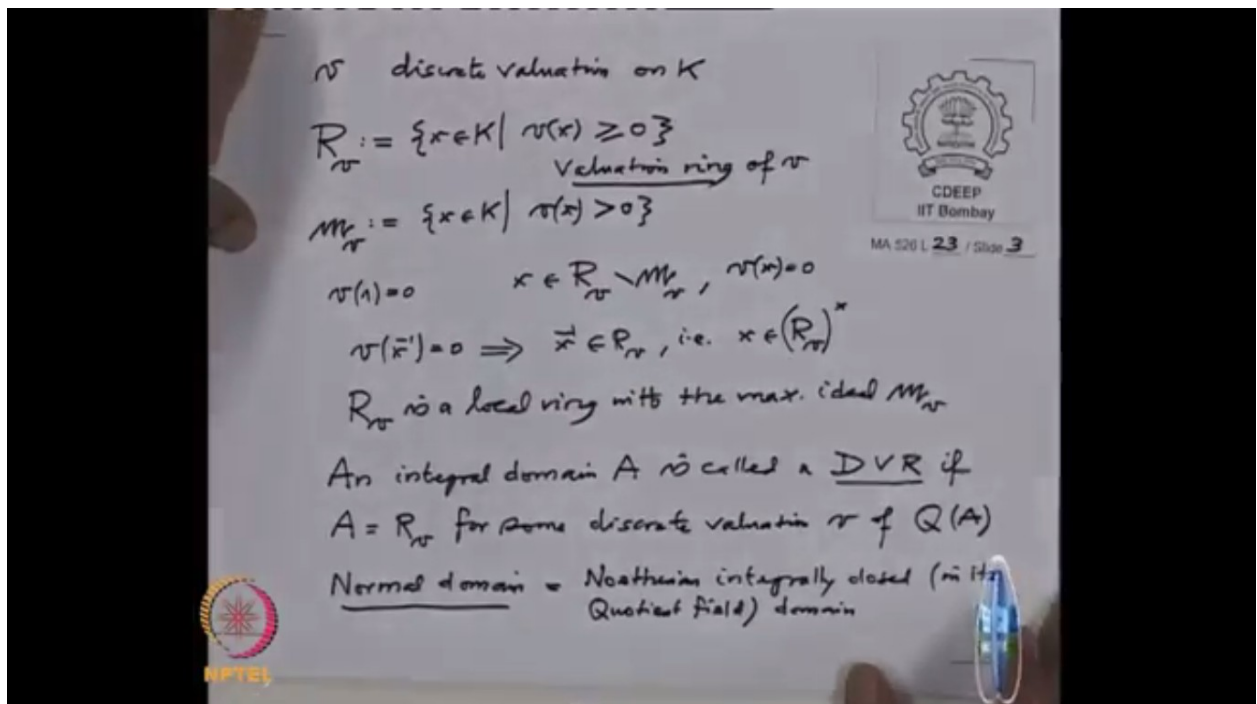 v discrete valuation on K
R_v := {x ∈ K | v(x) ≥ 0}
Valuation ring of v
m_v := {x ∈ K | v(x) > 0}
v(1)=0 x ∈ R_v \ m_v, v(x)=0
v(x⁻¹)=0 ⟹ x⁻¹ ∈ R_v, i.e. x ∈ (R_v)^×
R_v is a local ring with the max. ideal m_v
An integral domain A is called a DVR if
A = R_v for some discrete valuation v of Q(A)
Normal domain = Noetherian integrally closed (in its
Quotient field) domain
CDEEP
IIT Bombay
MA 526 L 23 / Slide 3
NPTEL